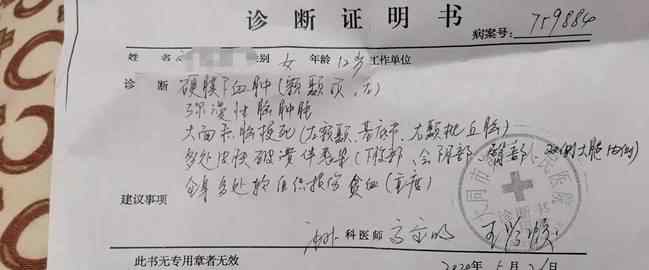 诊断证明书
病案号:759884
姓名 性别 女 年龄 12岁 工作单位
诊断 硬膜下血肿(额颞顶、左)
弥漫性脑肿胀
大面积脑梗死(左额颞、基底节、右颞枕丘脑)
多处皮肤破溃伴感染(下腹部、会阴部、臀部、双侧大腿内侧)
全身多处软组织损伤 贫血(重度)
建议事项
外 科医师
此书无专用章者无效
大同市 医院
诊断书
2020年5月 日